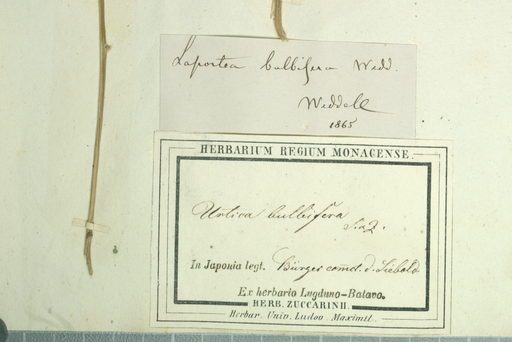 Laportea bulbifera Wedd.
Weddell
1865
HERBARIUM REGIUM MONACENSE.
Urtica bulbifera
S. & Z.
In Japonia legt. Bürger comt. d. Siebold
Ex herbario Lugduno-Batavo.
HERB. ZUCCARINII.
Herbar. Univ. Ludov. Maximil.